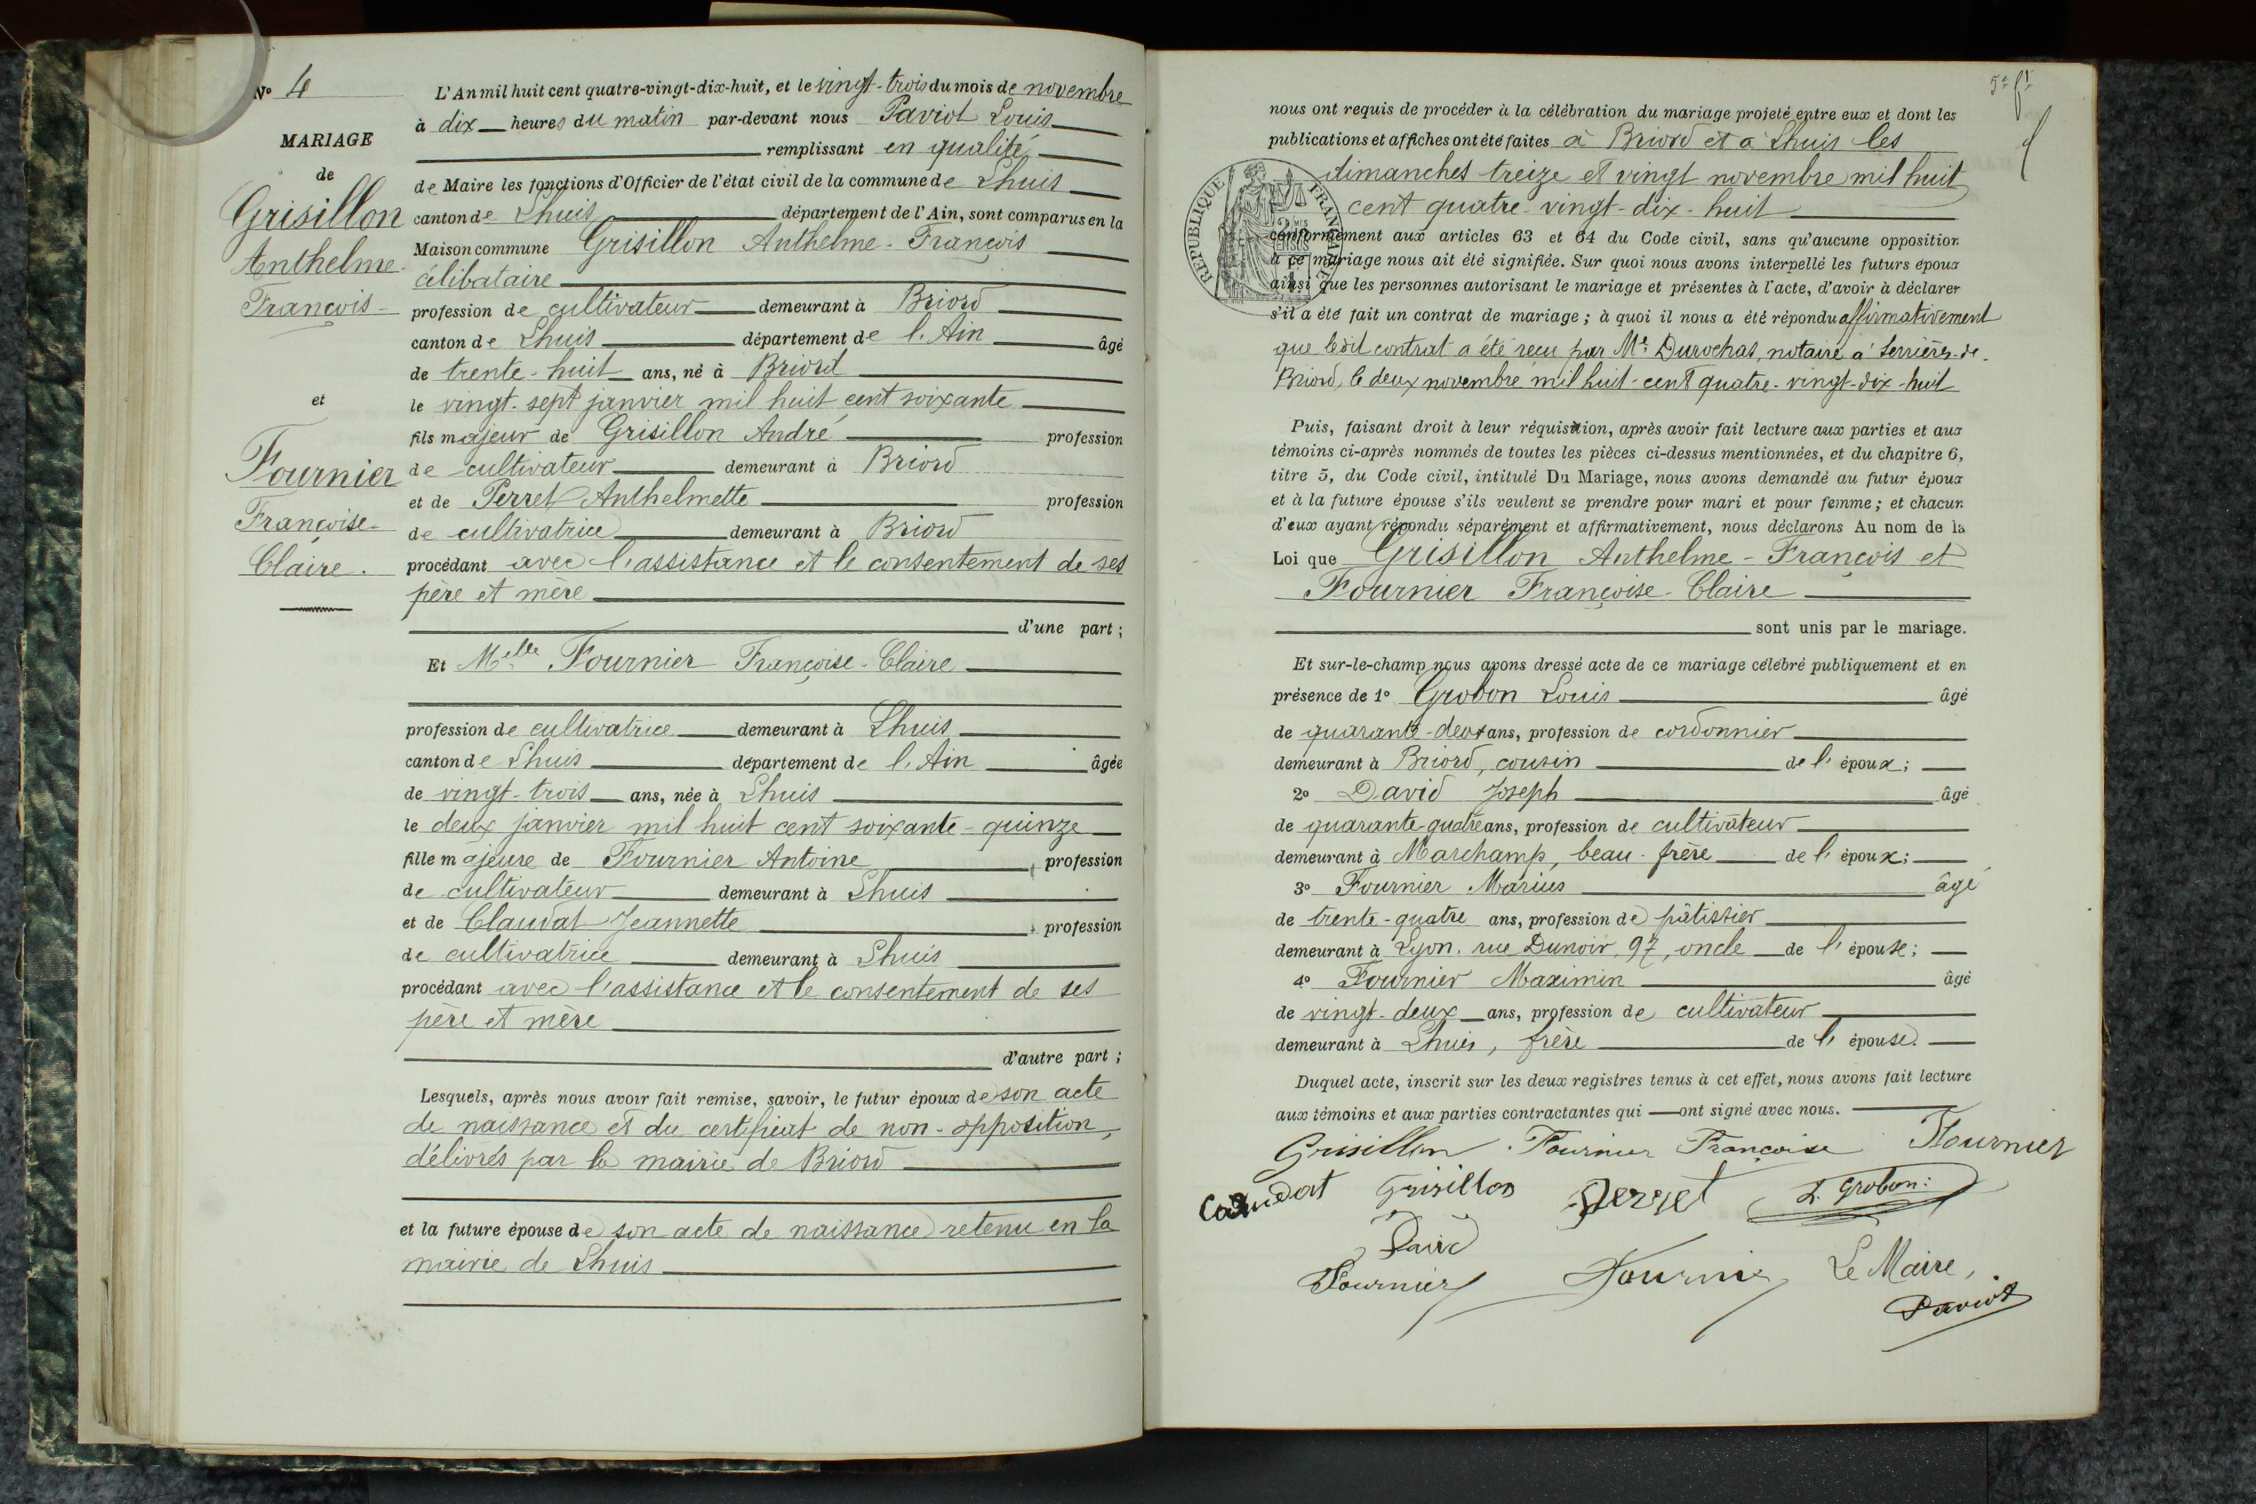 N° 4
MARIAGE
de
Grisillon
Anthelme-
François-
et
Fournier
Françoise-
Claire.
L'An mil huit cent quatre-vingt-dix-huit, et le vingt-trois du mois de novembre
à dix heures du matin par-devant nous Paviot Louis
remplissant en qualité
de Maire les fonctions d'Officier de l'état civil de la commune de Lhuis
canton de Lhuis département de l'Ain, sont comparus en la
Maison commune Grisillon Anthelme-François
célibataire
profession de cultivateur demeurant à Briord
canton de Lhuis département de l'Ain âgé
de trente-huit ans, né à Briord
le vingt-sept janvier mil huit cent soixante
fils majeur de Grisillon André profession
de cultivateur demeurant à Briord
et de Perret Anthelmette profession
de cultivatrice demeurant à Briord
procédant avec l'assistance et le consentement de ses
père et mère
d'une part ;
Et Melle Fournier Françoise-Claire
profession de cultivatrice demeurant à Lhuis
canton de Lhuis département de l'Ain âgée
de vingt-trois ans, née à Lhuis
le deux janvier mil huit cent soixante-quinze
fille majeure de Fournier Antoine, profession
de cultivateur demeurant à Lhuis
et de Claudat Jeannette, profession
de cultivatrice demeurant à Lhuis
procédant avec l'assistance et le consentement de ses
père et mère
d'autre part ;
Lesquels, après nous avoir fait remise, savoir, le futur époux de son acte
de naissance et du certificat de non-opposition,
délivrés par la mairie de Briord
et la future épouse de son acte de naissance retenu en la
mairie de Lhuis
5e ft
nous ont requis de procéder à la célébration du mariage projeté entre eux et dont les
publications et affiches ont été faites à Briord et à Lhuis les
dimanches treize et vingt novembre mil huit
cent quatre-vingt-dix-huit
RÉPUBLIQUE FRANÇAISE
conformément aux articles 63 et 64 du Code civil, sans qu'aucune opposition
à ce mariage nous ait été signifiée. Sur quoi nous avons interpellé les futurs époux
ainsi que les personnes autorisant le mariage et présentes à l'acte, d'avoir à déclarer
s'il a été fait un contrat de mariage ; à quoi il nous a été répondu affirmativement
que ledit contrat a été reçu par Me Durochas, notaire à Serrières-de-
Briord, le deux novembre mil huit-cent quatre-vingt-dix-huit
Puis, faisant droit à leur réquisition, après avoir fait lecture aux parties et aux
témoins ci-après nommés de toutes les pièces ci-dessus mentionnées, et du chapitre 6,
titre 5, du Code civil, intitulé Du Mariage, nous avons demandé au futur époux
et à la future épouse s'ils veulent se prendre pour mari et pour femme ; et chacun
d'eux ayant répondu séparément et affirmativement, nous déclarons Au nom de la
Loi que Grisillon Anthelme-François et
Fournier Françoise-Claire
sont unis par le mariage.
Et sur-le-champ nous avons dressé acte de ce mariage célébré publiquement et en
présence de 1° Grobon Louis âgé
de quarante-deux ans, profession de cordonnier
demeurant à Briord, cousin de l'époux ;
2° David Joseph âgé
de quarante-quatre ans, profession de cultivateur
demeurant à Marchamp, beau-frère de l'époux ;
3° Fournier Marius âgé
de trente-quatre ans, profession de pâtissier
demeurant à Lyon, rue Dunoir, 97, oncle de l'épouse ;
4° Fournier Maximin âgé
de vingt-deux ans, profession de cultivateur
demeurant à Lhuis, frère de l'épouse.
Duquel acte, inscrit sur les deux registres tenus à cet effet, nous avons fait lecture
aux témoins et aux parties contractantes qui ont signé avec nous.
Grisillon Fournier Françoise Fournier
Grisillon Perret L. Grobon
David
Fournier Fournier Le Maire,
Paviot